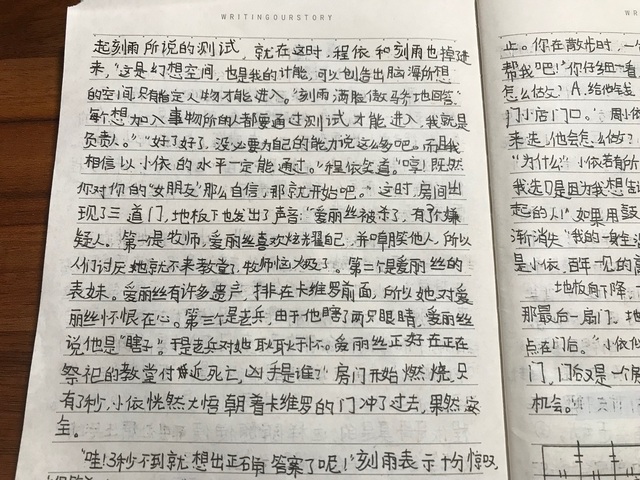 WRITINGOURSTORY
起刻雨所说的测试，就在这时，程依和刻雨也掉进
来，"这是幻想空间，也是我的计能，可以创造出脑海所想
的空间，只有指定人物才能进入。"刻雨满脸傲娇地回答
每个想加入事物所的人都要通过测试才能进入，我就是
负责人。""好了好了，没必要为自己的能力说这么多吧。而且我
相信以小依的水平一定能通过。"程依笑道。"哼！既然
你对你的"女朋友"那么自信，那就开始吧。"这时，房间出
现了三道门，地板下也发出了声音："爱丽丝被杀了，有了嫌
疑人。第一个是牧师，爱丽丝喜欢炫耀自己，并嘲笑他人，所以
人们讨厌她就不来教堂了，牧师恼火极了。第二个是爱丽丝的
表妹。爱丽丝有许多遗产，排在卡维罗前面，所以她对爱
丽丝怀恨在心。第三个是老兵，由于他瞎了两只眼睛，爱丽丝
说他是"瞎子"。于是老兵对她耿耿于怀。爱丽丝正好在正在
祭祀的教堂附近死亡，凶手是谁？"房门开始燃烧，只
有了秒，小依恍然大悟朝着卡维罗的门冲了过去，果然安
全。
"哇！3秒不到就想出正确答案了呢！"刻雨表示十分惊叹
止。你在散步时，一
帮我吧！"你仔细一看
怎么做？A.给他钱
门小店门口。"周小依
来选，他会怎么做？
"为什么"小依若有所
我选只是因为我想
起的人！"如果用鼓
渐消失"我的一身
是小依，百年一见的
地板向下降。
那最后一扇门。地
点在门后。"小依
门，门后又是一个房
机会。